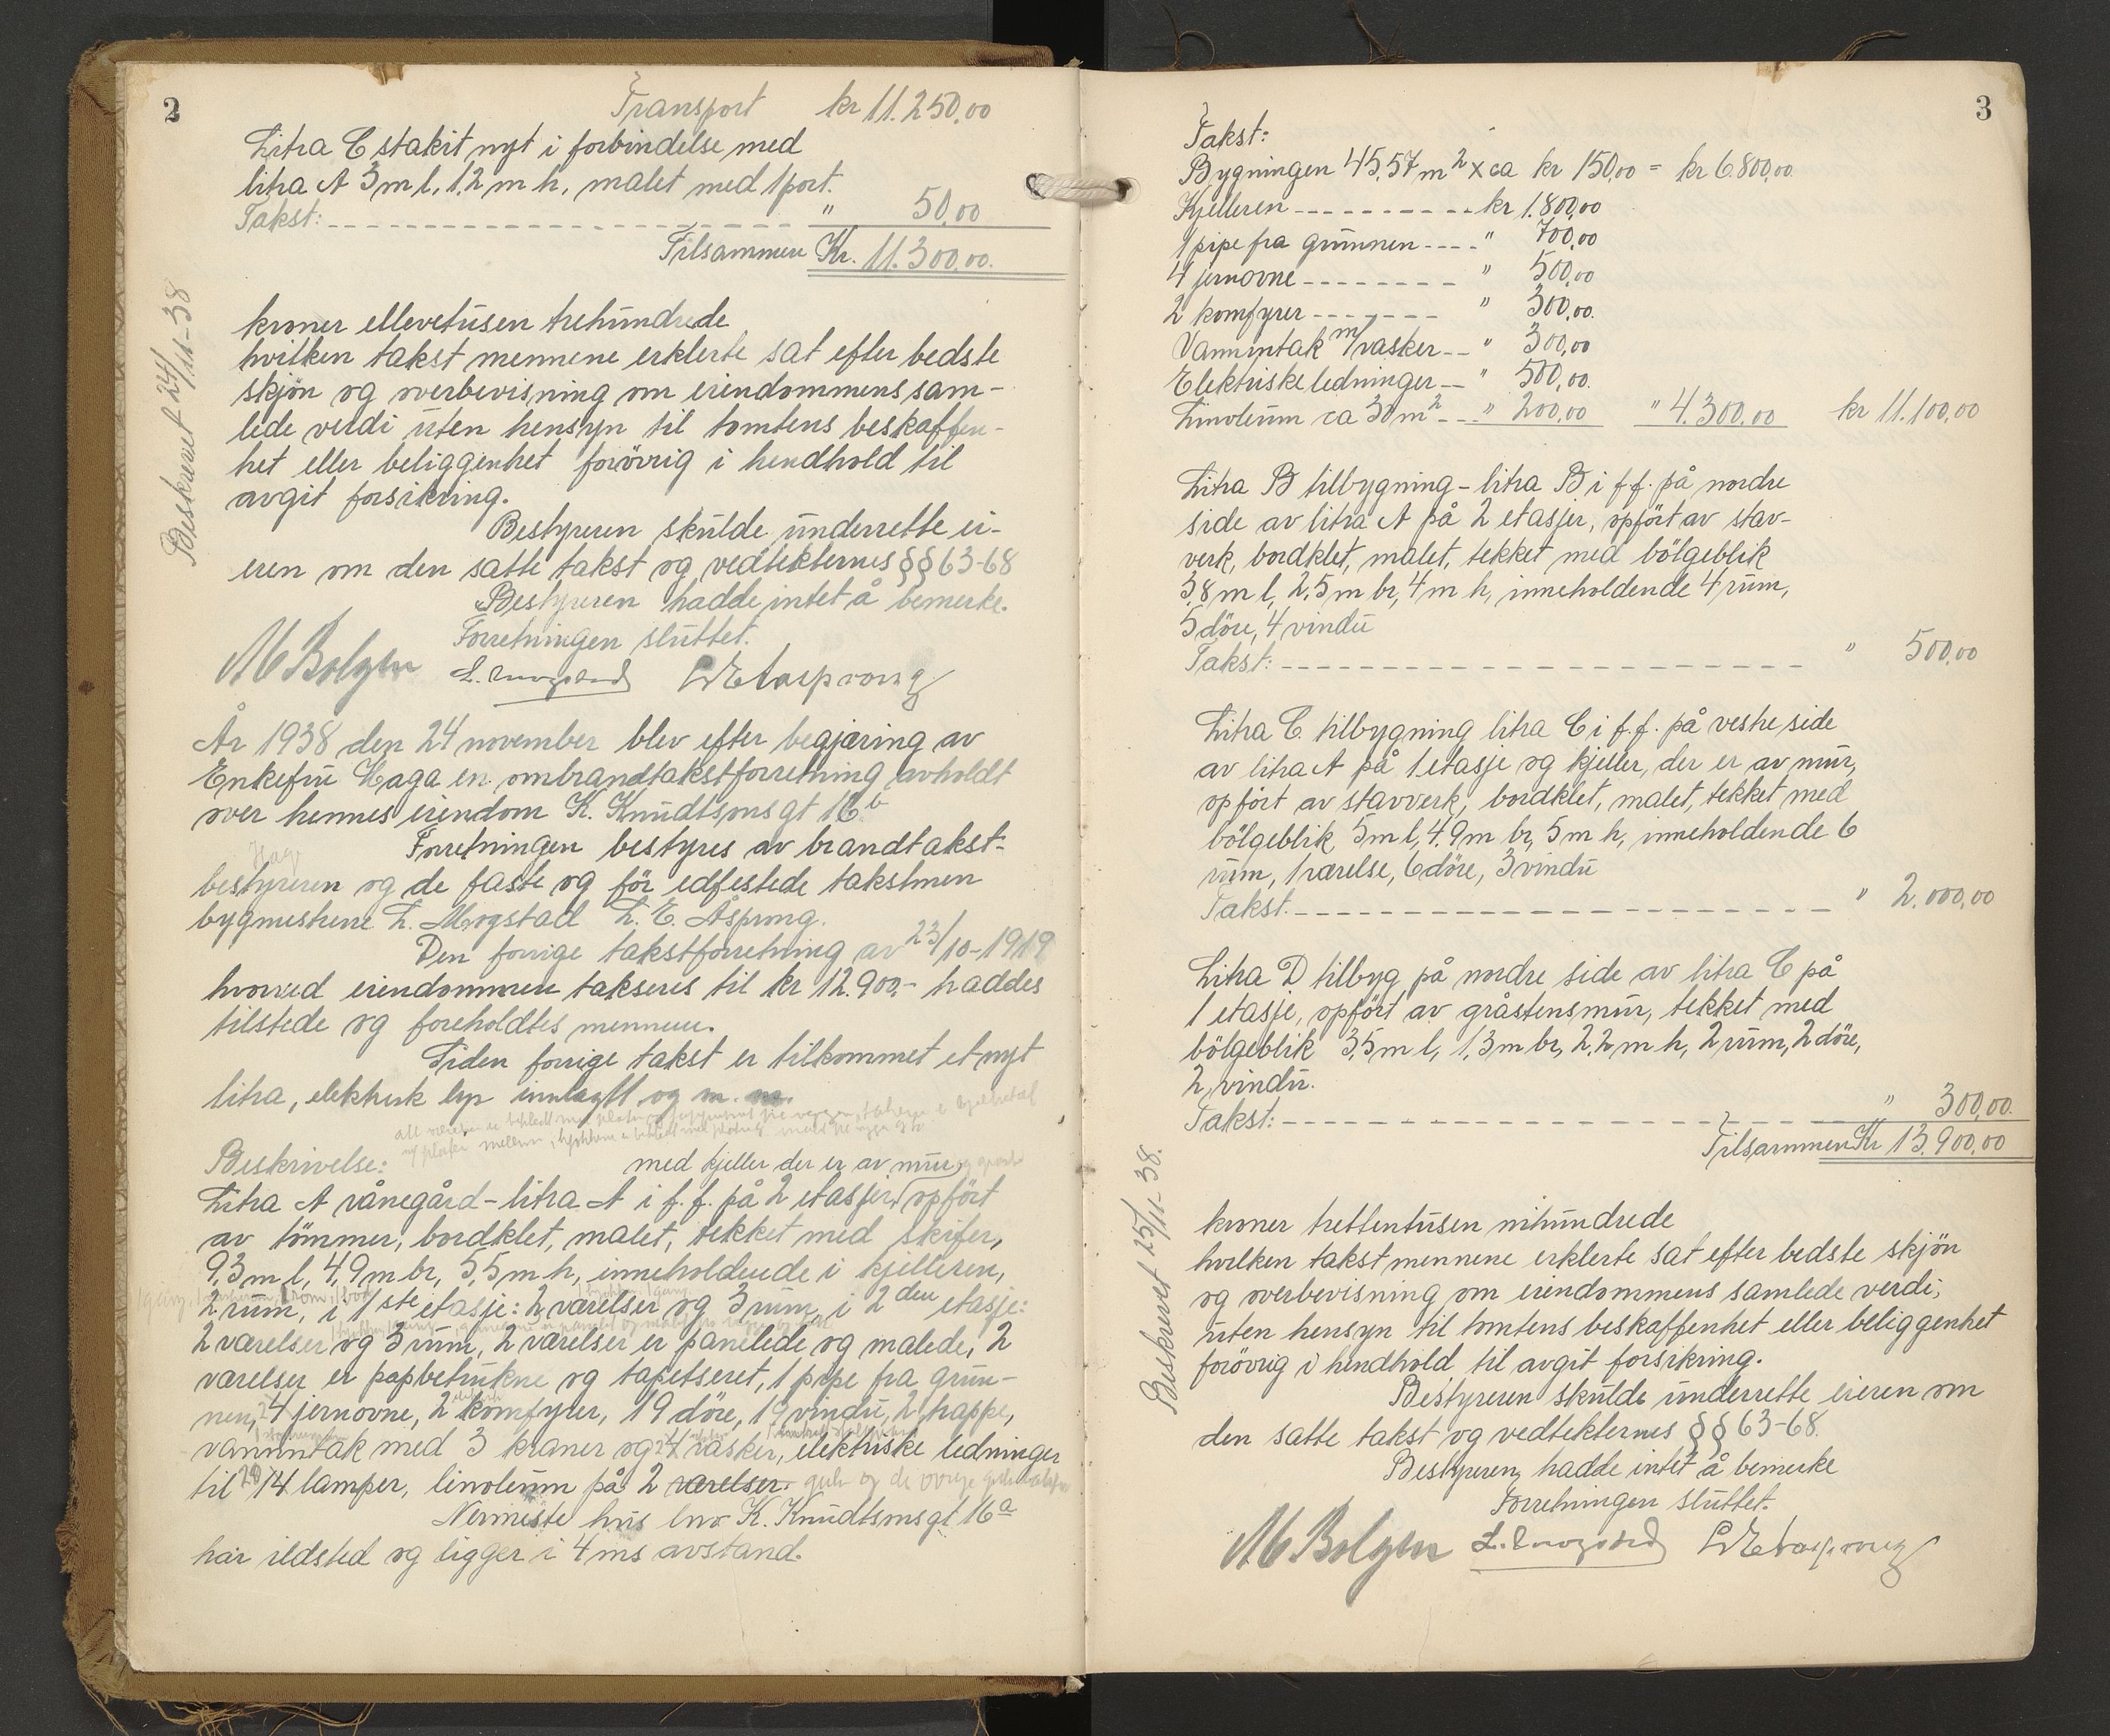 2
Transport kr 11.250,00
Litra C stakit nyt i forbindelse med
litra A 3 m l, 1,2 m h, malet med 1 port.
Takst: " 50,00
Tilsammen Kr. 11.300,00.
kroner ellevetusen trehundrede
hvilken takst mennene erklerte sat efter bedste
skjön og overbevisning om eiendommens sam-
lede verdi uten hensyn til tomtens beskaffen-
het eller beliggenhet forövrig i hendhold til
avgit forsikring.
Bestyreren skulde underrette ei-
eren om den satte takst og vedtekternes §§ 63-68
Bestyreren hadde intet å bemerke.
Forretningen sluttet.
Beskrevet 24/11-38
År 1938 den 24 november blev efter begjæring av
Enkefru Haga en ombrandtakstforretning avholdt
over hennes eiendom K. Knudtsons gt 16b
Forretningen bestyres av brandtakst-
bestyreren og de faste og för edfestede takstmen
bygmestrene L. Mogstad L. E. Åsprong.
Den forrige takstforretning av 23/10-1919
hvorved eiendommen takseres til kr 12.900,- haddes
tilstede og foreholdtes mennene.
Siden forrige takst er tilkommet et nyt
litra, elektrisk lys innlagt og m. m.
Beskrivelse: med kjeller der er av mur
Litra A vånegård - litra A i f.f. på 2 etasjer opfört
av tömmer, bordklet, malet, tekket med skifer,
9,3 m l, 4,9 m br, 5,5 m h, inneholdende i kjelleren,
2 rum, i 1ste etasje: 2 værelser og 3 rum, i 2den etasje:
2 værelser og 3 rum, 2 værelser er panelede og malede, 2
værelser er papbetrukne og tapetseret, 1 pipe fra grun-
nen, 4 jernovne, 2 komfyrer, 19 döre, 19 vindu, 2 trappe,
vanninntak med 3 kraner og 4 vasker, elektriske ledninger
til 14 lamper, linoleum på 2 værelser.
Nermeste hus lnr K. Knudtsonsgt 16a
har ildsted og ligger i 4 ms avstand.
3
Takst:
Bygningen 45,57 m2 x ca kr 150,00 = kr 6.800,00
Kjelleren kr 1.800,00
1 pipe fra grunnen " 700,00
4 jernovne " 500,00
2 komfyrer " 300,00.
Vanninntak m/vasker " 300,00
Elektriske ledninger " 500,00.
Linoleum ca 30 m2 " 200,00 " 4.300,00 kr 11.100,00
Litra B tilbygning - litra B i f.f. på nordre
side av litra A på 2 etasjer, opfört av stav-
verk, bordklet, malet, tekket med bölgeblik
3,8 m l, 2,5 m br, 4 m h, inneholdende 4 rum,
5 döre, 4 vindu
Takst: " 500,00
Litra C. tilbygning litra C i f.f. på vestre side
av litra A på 1 etasje og kjeller, der er av mur,
opfört av stavverk, bordklet, malet, tekket med
bölgeblik 5 m l, 4,9 m br, 5 m h, inneholdende 6
rum, 1 værelse, 6 döre, 3 vindu
Takst. " 2.000,00
Litra D tilbyg på nordre side av litra C på
1 etasje, opfört av gråstensmur, tekket med
bölgeblik 3,5 m l, 1,3 m br, 2,2 m h, 2 rum, 2 döre,
2 vindu.
Takst: " 300,00.
Tilsammen Kr 13.900,00
kroner trettentusen nihundrede
hvilken takst mennene erklerte sat efter bedste skjön
og overbevisning om eiendommens samlede verdi,
uten hensyn til tomtens beskaffenhet eller beliggenhet
forövrig i hendhold til avgit forsikring.
Bestyreren skulde underrette eieren om
den satte takst og vedtekternes §§ 63-68.
Bestyreren hadde intet å bemerke
Forretningen sluttet.
Beskrevet 25/11-38.